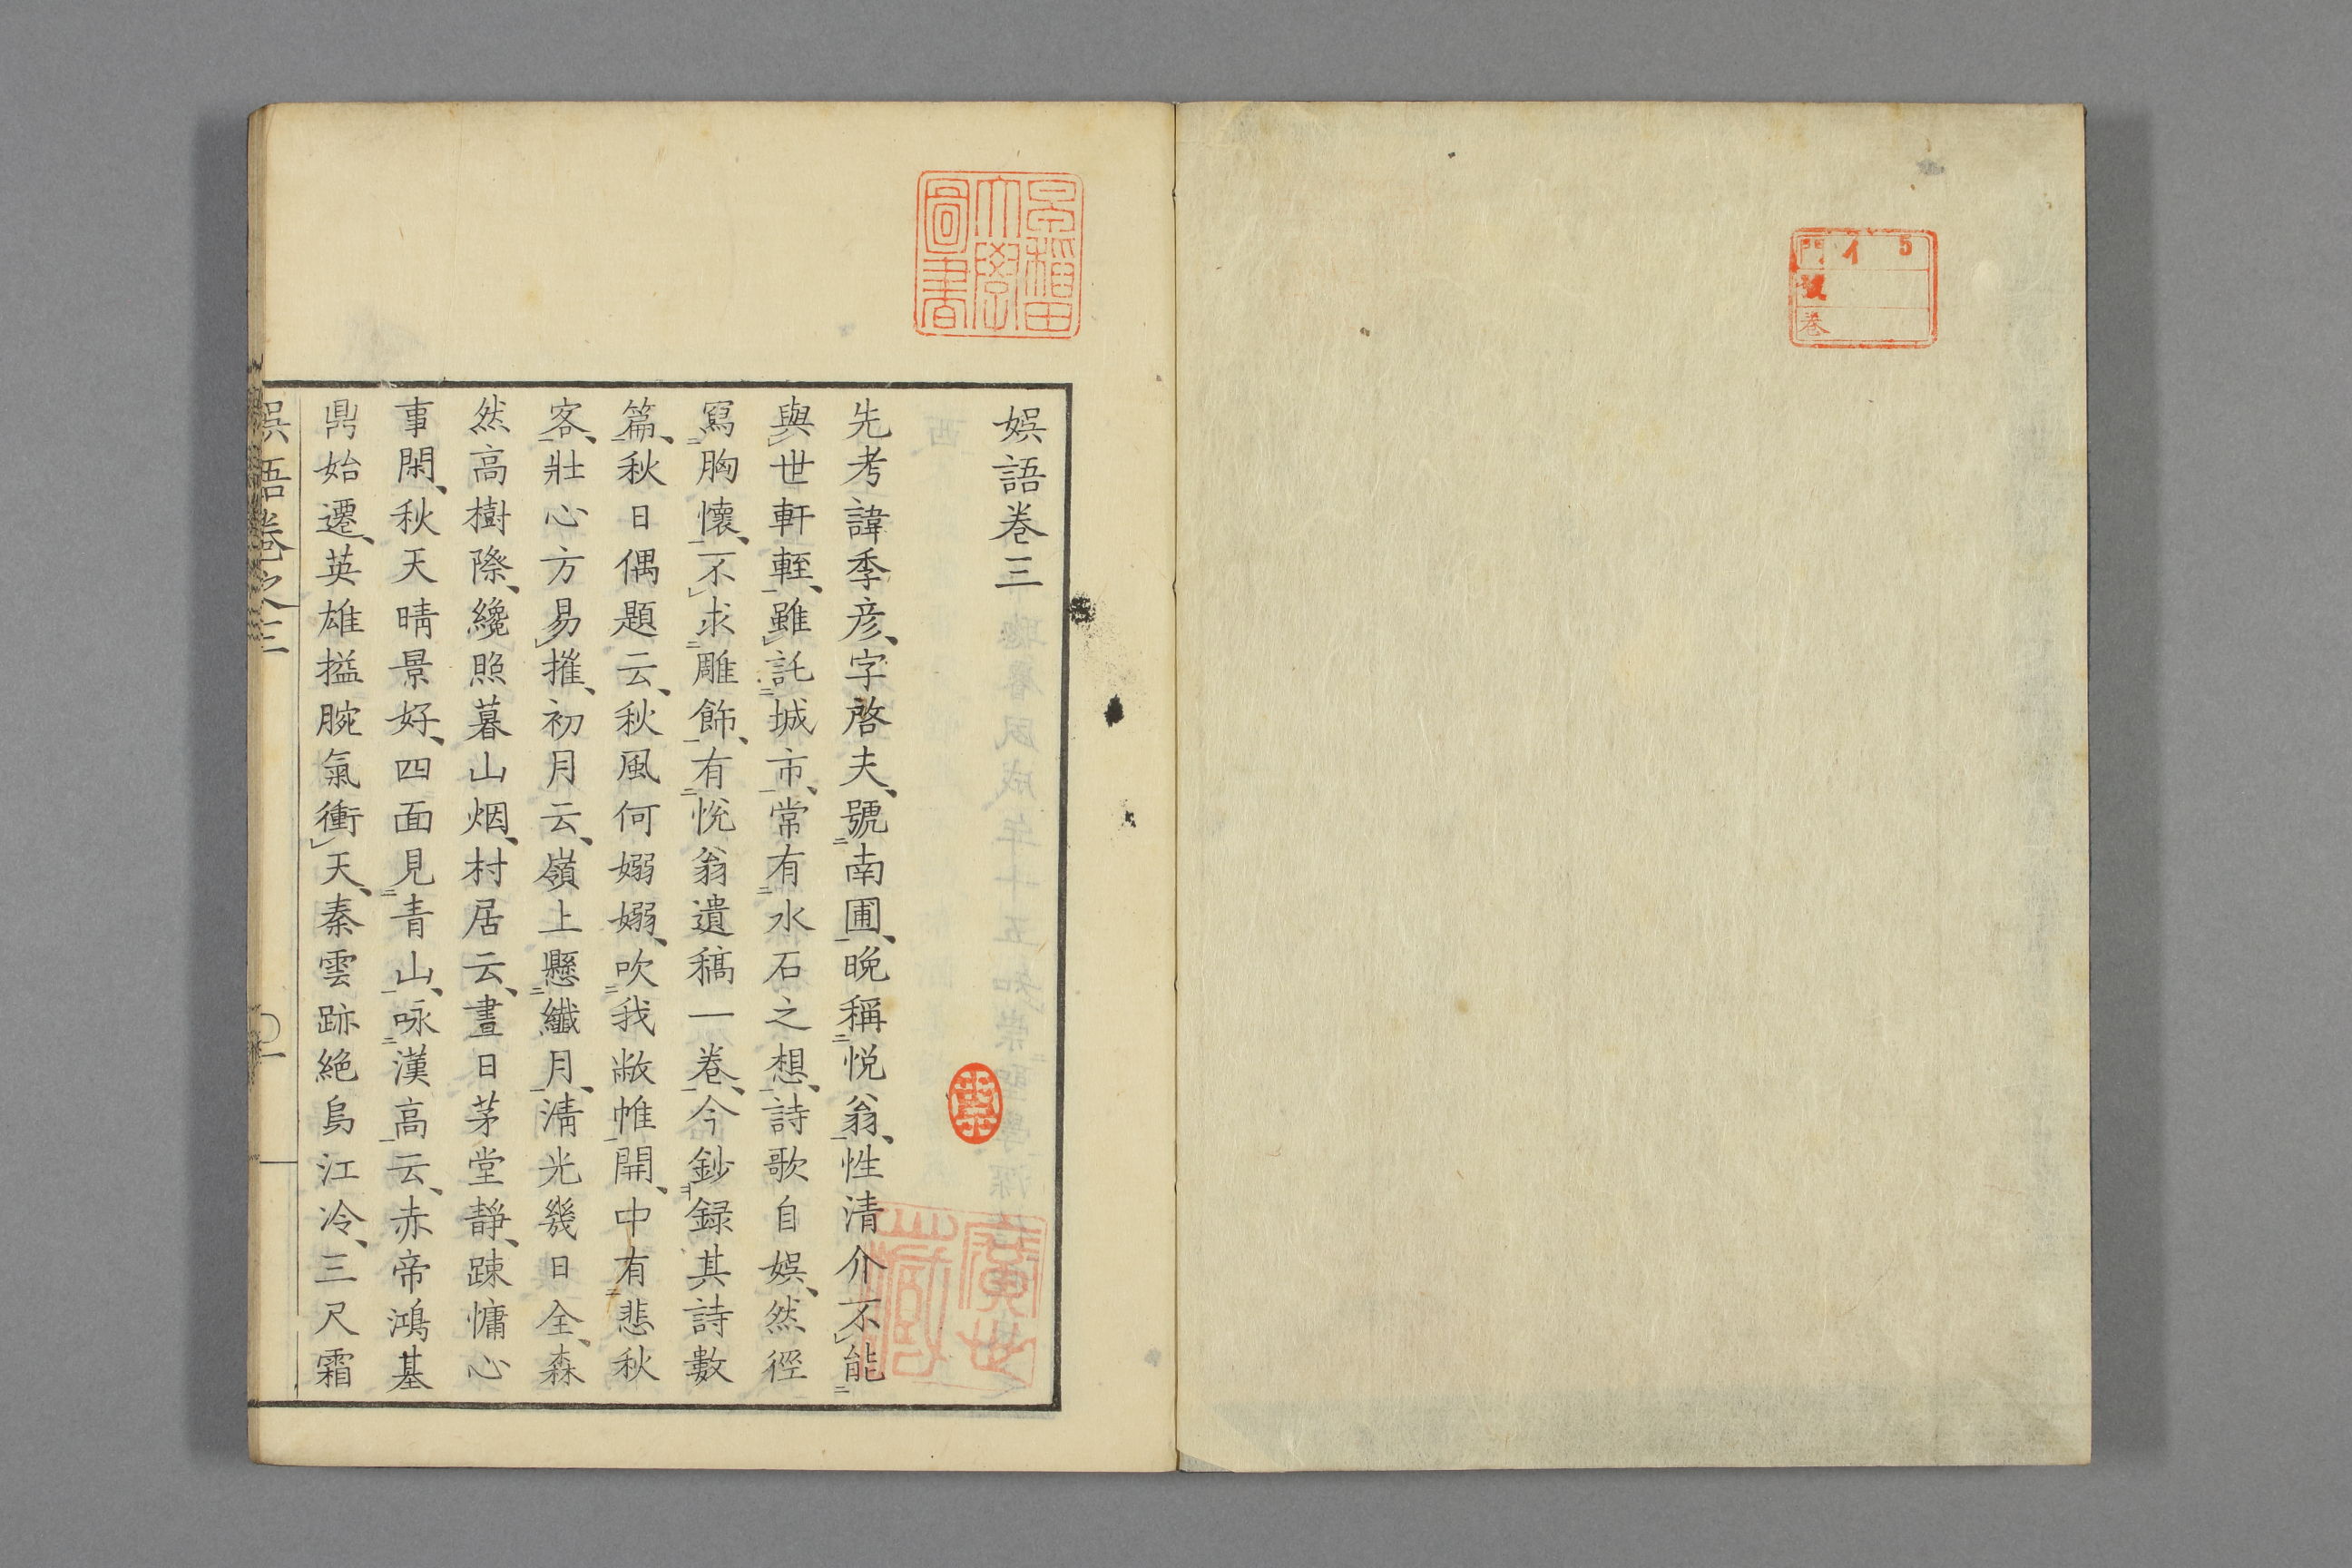 5
イ
門
號
卷
早稻田
大學
圖書
娯語卷三
先考諱季彦、字啓夫、號南圃、晩稱悦翁、性清介不能
與世軒輊、雖託城市、常有水石之想、詩歌自娯、然徑
寫胸懷、不求雕飾、有悦翁遺稿一卷、今鈔録其詩數
篇、秋日偶題云、秋風何嫋嫋、吹我敝帷開、中有悲秋
客、壯心方易摧、初月云、嶺上懸纖月、清光幾日全、森
然高樹際、纔照暮山烟、村居云、晝日茅堂靜、踈慵心
事閑、秋天晴景好、四面見青山、咏漢高云、赤帝鴻基
鼎始遷、英雄搤腕氣衝天、秦雲跡絶烏江冷、三尺霜
娯語卷之三
一